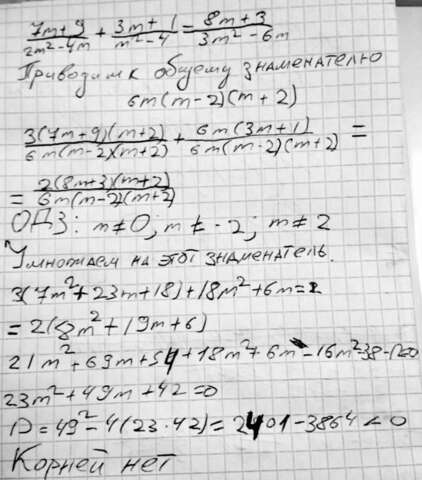 7m+9/2m²-4m + 3m+1/m²-4 = 8m+3/3m²-6m
Приводим к общему знаменателю
6m(m-2)(m+2)
3(7m+9)(m+2)/6m(m-2)(m+2) + 6m(3m+1)/6m(m-2)(m+2) =
= 2(8m+3)(m+2)/6m(m-2)(m+2)
ОДЗ: m≠0; m≠-2; m≠2
Умножаем на этот знаменатель.
3(7m²+23m+18)+18m²+6m=
=2(8m²+19m+6)
21m²+69m+54+18m²+6m-16m²-38-12=0
23m²+49m+42=0
D=49²-4(23·42)=2401-3864<0
Корней нет